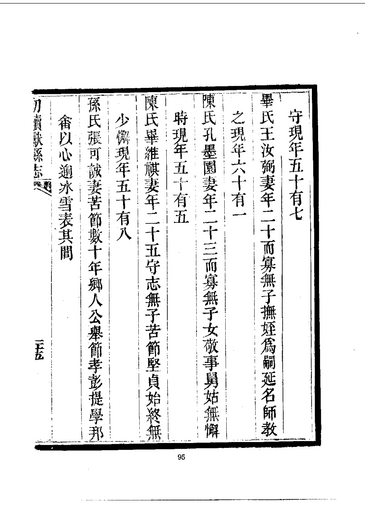 守現年五十有七
畢氏王汝弼妻年二十而寡無子撫姪爲嗣延名師教
之現年六十有一
陳氏孔墨園妻年二十三而寡無子女敬事舅姑無懈
時現年五十有五
陳氏畢維祺妻年二十五守志無子苦節堅貞始終無
少懈現年五十有八
孫氏張可誠妻苦節數十年鄉人公舉節孝彭提學邦
畬以心適冰雪表其閭
初續獻縣志
二十五
95